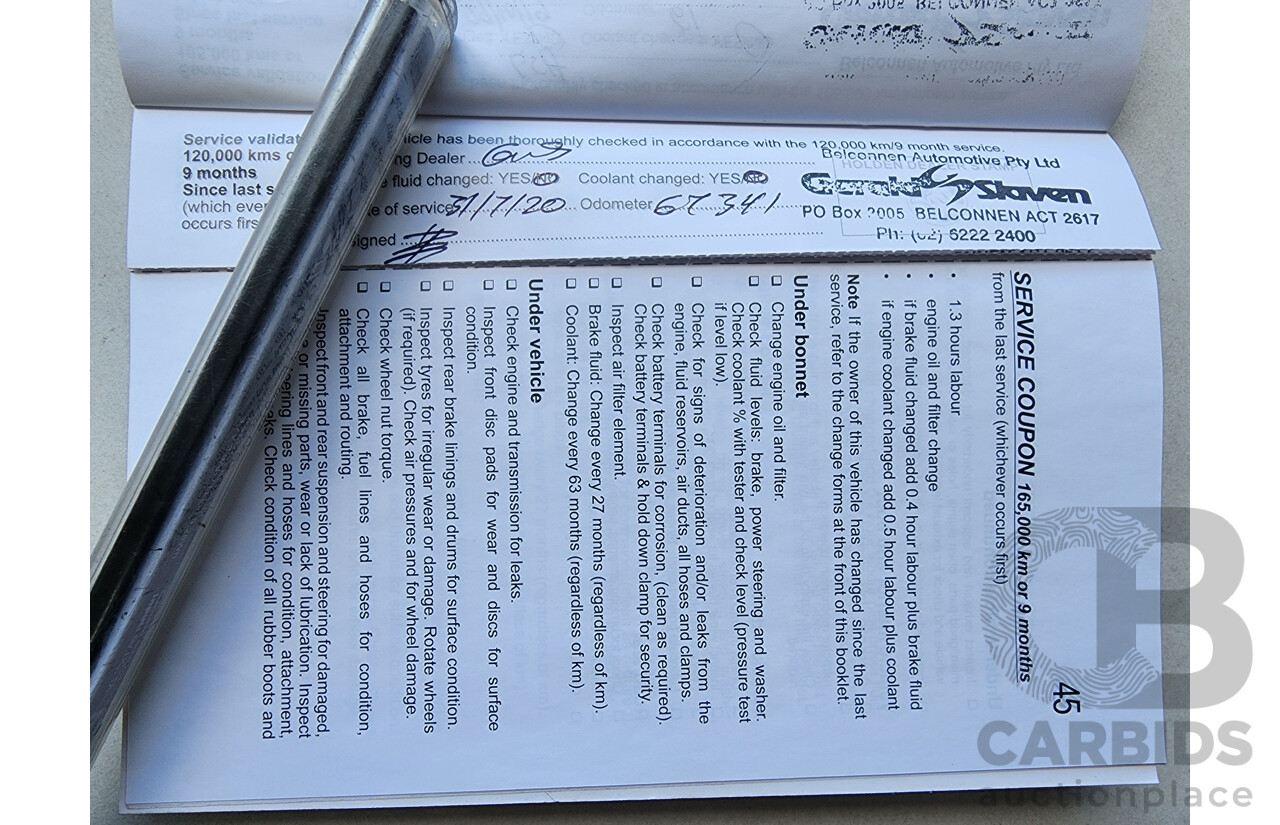 Service validat
120,000 kms
9 months
Since last s
(which ever
occurs firs
icle has been thoroughly checked in accordance with the 120,000 km/9 month service.
ng Dealer
fluid changed: YES/NO Coolant changed: YES/NO
e of service 31/7/20 Odometer 67341
signed
HOLDEN DEALER STAMP
Belconnen Automotive Pty Ltd
Gerald Slaven
PO Box 2005 BELCONNEN ACT 2617
Ph: (02) 6222 2400
45
SERVICE COUPON 165,000 km or 9 months
from the last service (whichever occurs first)
• 1.3 hours labour
• engine oil and filter change
• if brake fluid changed add 0.4 hour labour plus brake fluid
• if engine coolant changed add 0.5 hour labour plus coolant
Note If the owner of this vehicle has changed since the last
service, refer to the change forms at the front of this booklet.
Under bonnet
❑ Change engine oil and filter.
❑ Check fluid levels: brake, power steering and washer.
Check coolant % with tester and check level (pressure test
if level low).
❑ Check for signs of deterioration and/or leaks from the
engine, fluid reservoirs, air ducts, all hoses and clamps.
❑ Check battery terminals for corrosion, (clean as required).
Check battery terminals & hold down clamp for security.
❑ Inspect air filter element.
❑ Brake fluid: Change every 27 months (regardless of km).
❑ Coolant: Change every 63 months (regardless of km).
Under vehicle
❑ Check engine and transmission for leaks.
❑ Inspect front disc pads for wear and discs for surface
condition.
❑ Inspect rear brake linings and drums for surface condition.
❑ Inspect tyres for irregular wear or damage. Rotate wheels
(if required). Check air pressures and for wheel damage.
❑ Check wheel nut torque.
❑ Check all brake, fuel lines and hoses for condition,
attachment and routing.
Inspect front and rear suspension and steering for damaged,
or missing parts, wear or lack of lubrication. Inspect
ering lines and hoses for condition, attachment,
aks. Check condition of all rubber boots and
CARBIDS
auctionplace